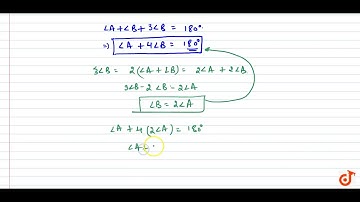 ∠A+∠B+3∠B = 180°
⇒) ∠A + 4∠B = 180°
3∠B = 2(∠A+∠B) = 2∠A + 2∠B
3∠B-2∠B = 2∠A
∠B = 2∠A
∠A + 4(2∠A) = 180°
∠A